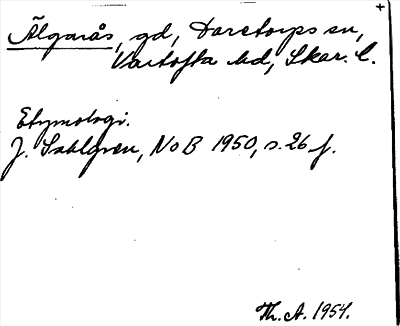 Älgarås, gd, Daretorps sn,
Vartofta hd, Skar. l.
Etymologi.
J. Sahlgren, NoB 1950, s. 26 f.
Th. A. 1954.